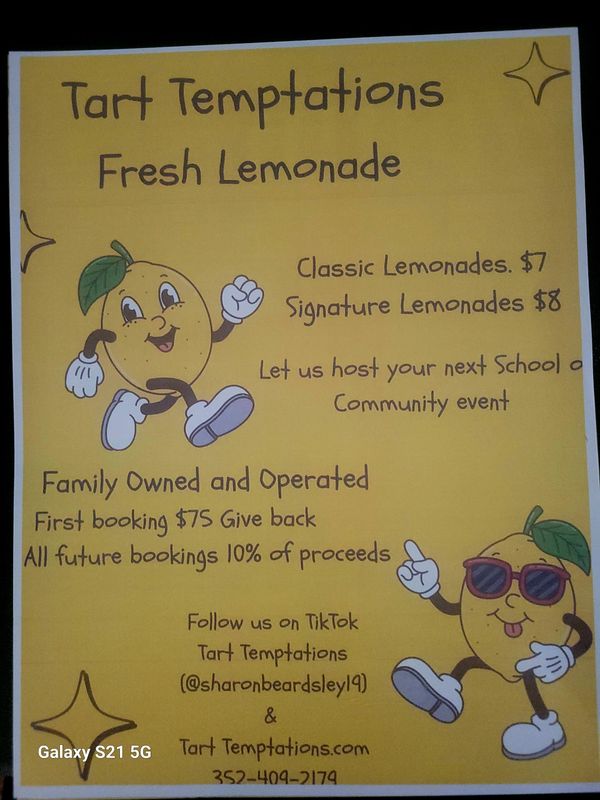 Tart Temptations
Fresh Lemonade
Classic Lemonades. $7
Signature Lemonades $8
Let us host your next School o
Community event
Family Owned and Operated
First booking $75 Give back
All future bookings 10% of proceeds
Follow us on TikTok
Tart Temptations
(@sharonbeardsley19)
&
Tart Temptations.com
352-409-2179
Galaxy S21 5G